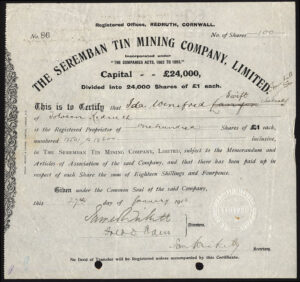 Registered Offices, REDRUTH, CORNWALL.
No. 86
No. of Shares 100
THE SEREMBAN TIN MINING COMPANY, LIMITED.
Incorporated under
"THE COMPANIES ACTS, 1862 TO 1893."
Capital - - £24,000,
Divided into 24,000 Shares of £1 each.
Swift
This is to Certify that Ida Winifred
of Redruth
is the Registered Proprietor of One hundred Shares of £1 each,
numbered to inclusive,
in THE SEREMBAN TIN MINING COMPANY, LIMITED, subject to the Memorandum and
Articles of Association of the said Company, and that there has been paid up in
respect of each Share the sum of Eighteen Shillings and Fourpence.
Given under the Common Seal of the said Company,
this 27th day of January
Directors.
Secretary.
No Deed of Transfer will be Registered unless accompanied by this Certificate.